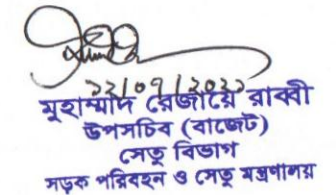 মুহাম্মাদ রেজায়ে রাব্বী
উপসচিব (বাজেট)
সেতু বিভাগ
সড়ক পরিবহন ও সেতু মন্ত্রণালয়